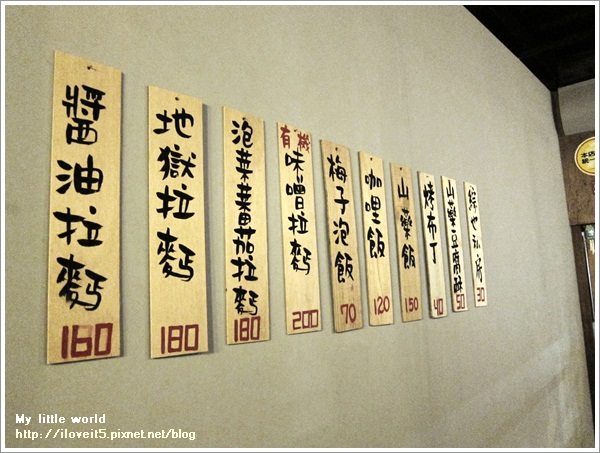 醬油拉麵
160
地獄拉麵
180
泡菜蕃茄拉麵
180
有機
味噌拉麵
200
梅子泡飯
70
咖哩飯
120
山藥飯
150
烤布丁
40
山藥豆腐酥
50
30
My little world
http://iloveit5.pixnet.net/blog